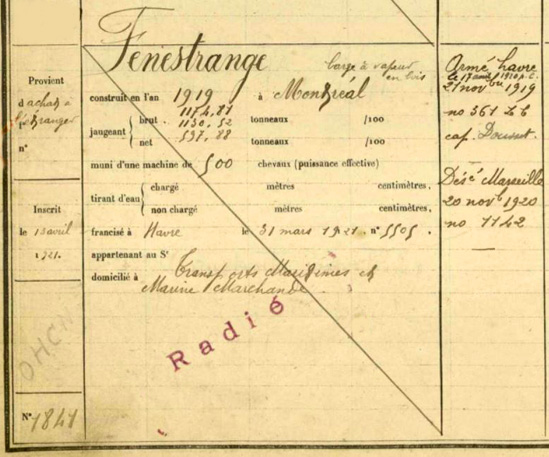 Fenestrange
barge à vapeur
en bois
Provient
d'achat à
l'étranger
n°
construit en l'an 1919 à Montréal
1174,81
brut 1130,52 tonneaux /100
jaugeant
net 597,88 tonneaux /100
muni d'une machine de 500 chevaux (puissance effective)
chargé mètres centimètres,
tirant d'eau
non chargé mètres centimètres,
Inscrit
le 13 avril
1921.
francisé à Havre le 31 mars 1921. n° 5505.
appartenant au Sr
Transports Maritimes et
domicilié à
Marine Marchande
Radié
OHCN
N° 1841
Armé Havre
le 17 1910 p.c.
21 novbre 1919
no 361
cap.
Désé Marseille
20 novb 1920
no 1142